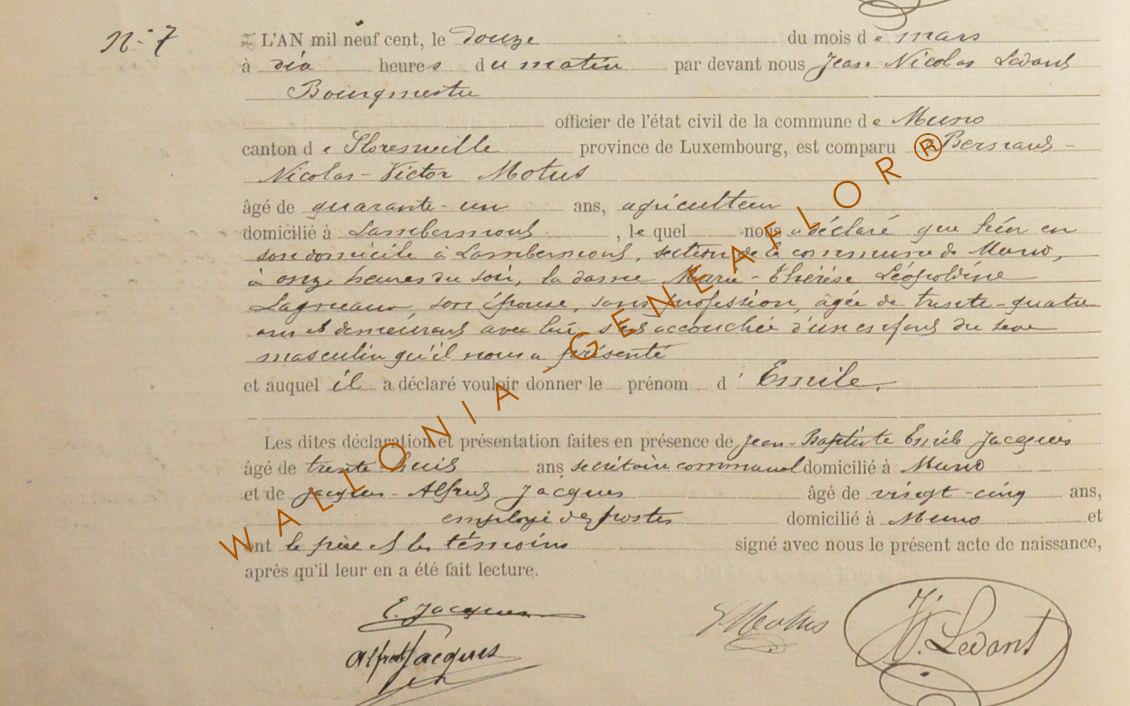 N° 7
L'AN mil neuf cent, le Douze du mois de mars
à dix heures du matin par devant nous Jean-Nicolas Ledant
Bourgmestre
officier de l'état civil de la commune de Muno
canton de Florenville province de Luxembourg, est comparu Bernard-
Nicolas-Victor Motus
âgé de quarante-un ans, agriculteur
domicilié à Lambermont, lequel nous a déclaré que hier en
son domicile à Lambermont, section de la commune de Muno,
à onze heures du soir, la dame Marie-Thérèse Léopoldine
Lagneaux, son épouse, sans profession, âgée de trente-quatre
ans et demeurant avec lui, s'est accouchée d'un enfant du sexe
masculin qu'il nous a présenté
et auquel il a déclaré vouloir donner le prénom d'Emile.
Les dites déclaration et présentation faites en présence de Jean-Baptiste Emile Jacques
âgé de trente-huit ans secrétaire communal domicilié à Muno
et de Jacques-Alfred Jacques âgé de vingt-cinq ans,
employé des postes domicilié à Muno et
ont le père et les témoins signé avec nous le présent acte de naissance,
après qu'il leur en a été fait lecture.
E. Jacques
V Motus
JN. Ledant
Alfred Jacques
WALLONIA-GENEAFLOR®